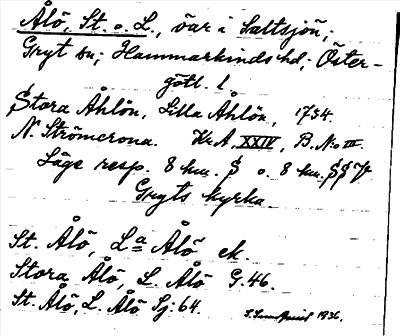 Ålö, St. o. L., öar i Saltsjön,
Gryt sn; Hammarkinds hd; Öster-
götl. l.
Stora Åhlön, Lilla Åhlön, 1734.
N. Strömcrona. Kr. A. XXIV, B. N:o III.
Läge resp. 8 km. S o. 8 km. SSV
Gryts kyrka.
St. Ålö, La Ålö ek.
Stora Ålö, L. Ålö G. 46.
St. Ålö, L. Ålö Sj: 64.
1936.